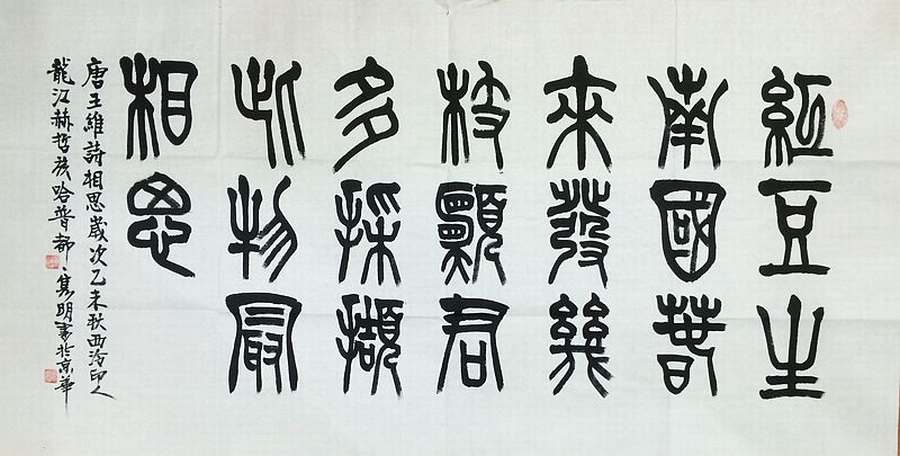 紅豆生
南國春
來發幾
枝願君
多採擷
此物最
相思
唐王維詩相思歲次乙未秋西泠印人
龍江赫哲族哈普都·隽明書於京華